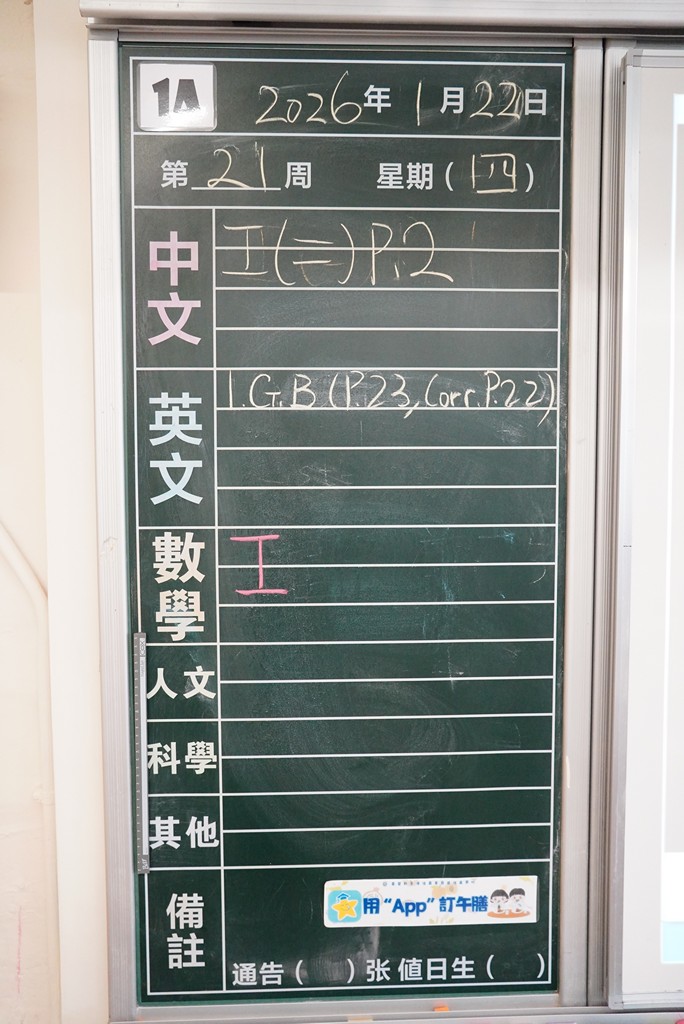 1A
2026年 1月22日
第 21 周 星期(四)
中文
工(二)P.2
英文
1.G.B (P.23, Corr.P.22)
數學
工
人文
科學
其他
備註
用“App”訂午膳
通告( )张 值日生( )